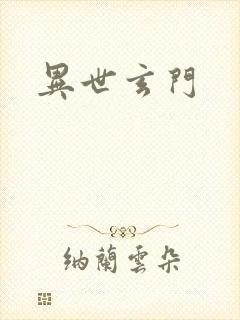 異世玄門
納蘭雲朵